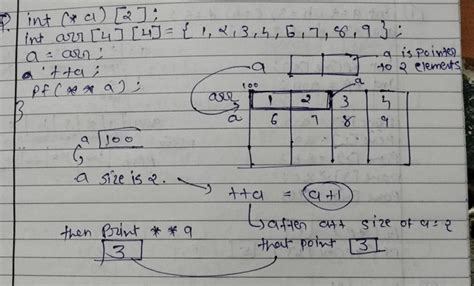 int (*a) [2];
int arr [4][4] = { 1, 2, 3, 4, 6, 7, 8, 9 };
a = arr;
a : ++a ;
pf ( * * a ) ;
}
a is pointer
to 2 elements
a
100
a
arr 1 2 3 4
a 6 7 8 9
a 100
a size is 2.
++a = a+1
after a++ size of a = 2
that point 3
then Print * * a
3